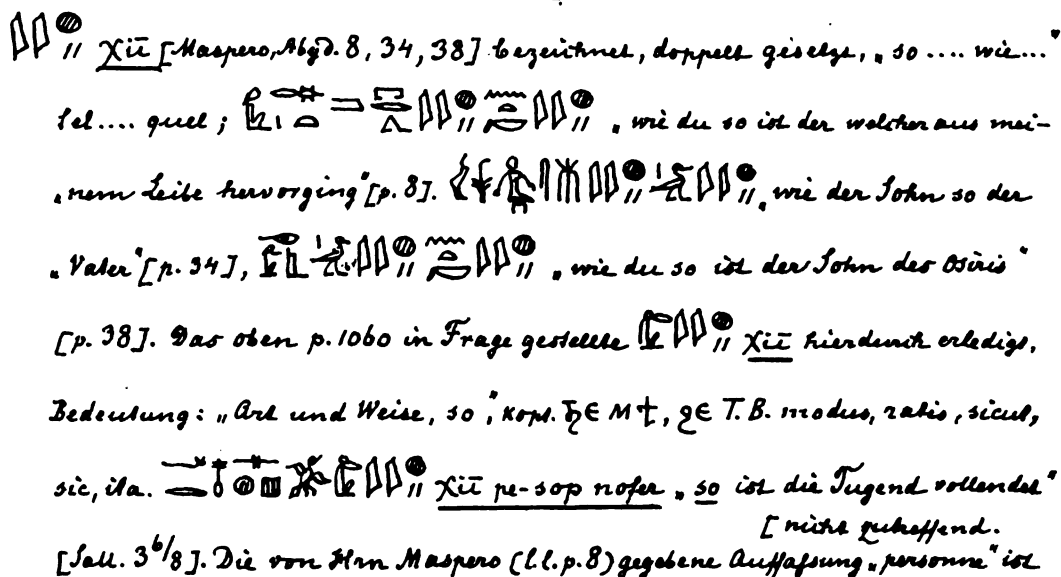 χiī [Maspero, Abyd. 8, 34, 38] bezeichnet, doppelt gesetzt, „so .... wie..."
tel.... quel; „wie du so ist der welcher aus mei-
„nem Leibe hervorging" [p. 8]. „wie der Sohn so der
„Vater" [p. 34], „wie du so ist der Sohn des Osiris"
[p. 38]. Das oben p. 1060 in Frage gestellte χiī hierdurch erledigt,
Bedeutung: „Art und Weise, so", kopt. ϧⲉ M †, ϩⲉ T. B. modus, ratis, sicut,
sic, ita. χiī pe-sop nofer „so ist die Tugend vollendet"
[nicht zutreffend.
[Sall. 3 6/8]. Die von Hrn Maspero (l.l. p. 8) gegebene Auffassung „personne" ist